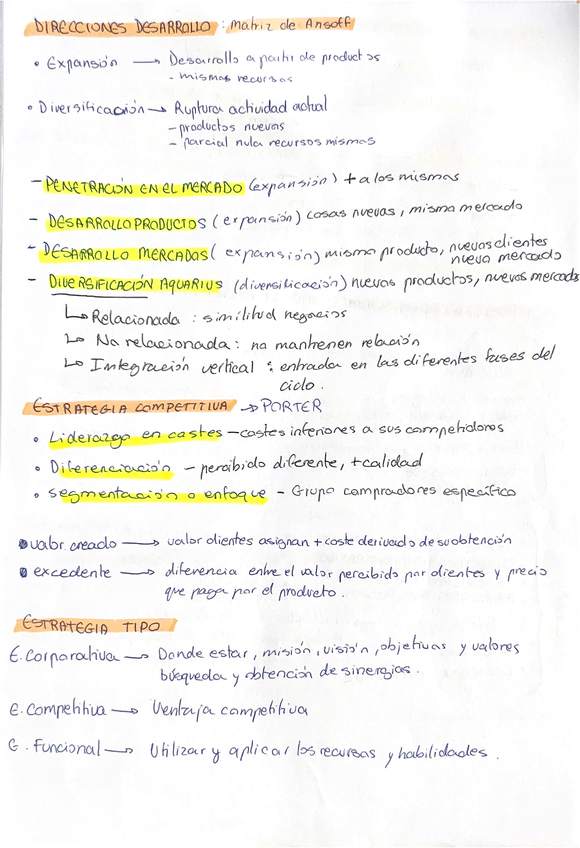 DIRECCIONES DESARROLLO : Matriz de Ansoff
• Expansión → Desarrollo a partir de productos
- mismos recursos
• Diversificación → Ruptura actividad actual
- productos nuevos
- parcial nula recursos mismos
- PENETRACIÓN EN EL MERCADO (expansión) + a los mismos
- DESARROLLO PRODUCTOS (expansión) cosas nuevas, mismo mercado
- DESARROLLO MERCADOS (expansión) mismo producto, nuevos clientes
nuevo mercado
- DIVERSIFICACIÓN AQUARIUS (diversificación) nuevos productos, nuevos mercado
↳ Relacionada : similitud negocios
↳ No relacionada : no mantienen relación
↳ Integración vertical : entrada en las diferentes fases del
ciclo.
ESTRATEGIA COMPETITIVA → PORTER
• Liderazgo en costes - costes inferiores a sus competidores
• Diferenciación - percibido diferente, + calidad
• Segmentación o enfoque - Grupo compradores específico
• valor creado → valor clientes asignan + coste derivado de su obtención
• excedente → diferencia entre el valor percibido por clientes y precio
que paga por el producto.
ESTRATEGIA TIPO
E. Corporativa → Donde estar, misión, visión, objetivos y valores
búsqueda y obtención de sinergias.
E. Competitiva → Ventaja competitiva
E. Funcional → Utilizar y aplicar los recursos y habilidades.